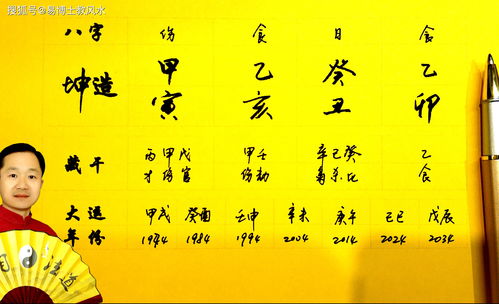 搜狐号@易博士教风水
八字 伤 食 日 食
坤造 甲 乙 癸 乙
寅 亥 丑 卯
藏干 丙甲戊 甲壬 辛己癸 乙
才伤官 伤劫 杀比 食
大运 甲戌 癸酉 壬申 辛未 庚午 己巳 戊辰
年份 1984 1994 2004 2014 2024 2034
道